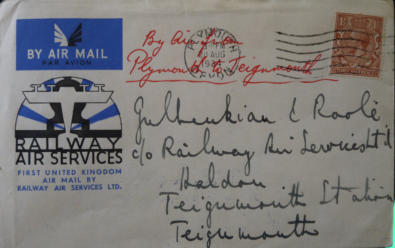 BY AIR MAIL
PAR AVION
By Air from
Plymouth to Teignmouth
PLYMOUTH
AUG
DEVON
RAILWAY
AIR SERVICES
FIRST UNITED KINGDOM
AIR MAIL BY
RAILWAY AIR SERVICES LTD.
c/o Railway Air Services Ltd
Haldon
Teignmouth Station
Teignmouth